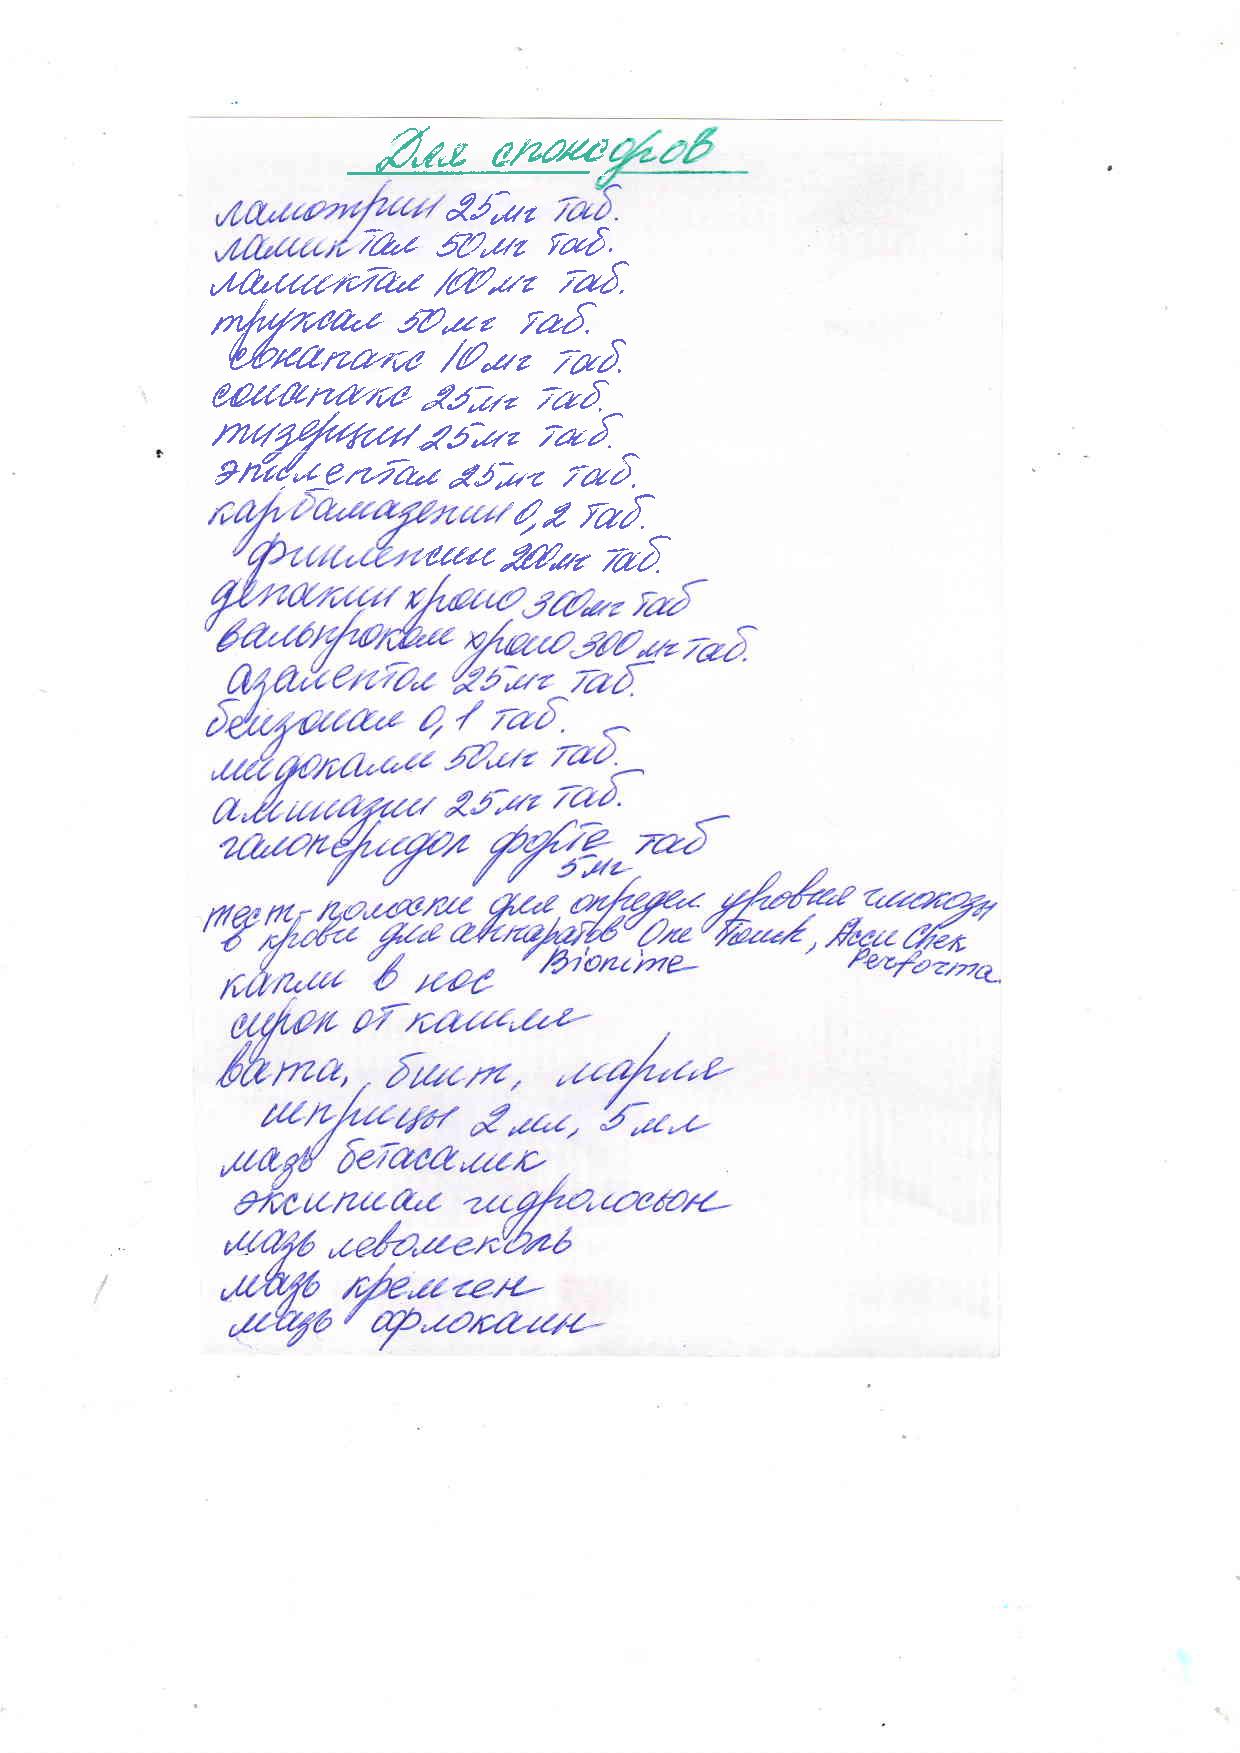 Для спонсоров
ламотрин 25мг таб.
ламиктал 50мг таб.
ламиктал 100мг таб.
труксал 50мг таб.
сонапакс 10мг таб.
сонапакс 25мг таб.
тизерцин 25мг таб.
эпилептал 25мг таб.
карбамазепин 0,2 таб.
финлепсин 200мг таб.
депакин хроно 300мг таб
вальпроком хроно 300мг таб.
азалептол 25мг таб.
бензонал 0,1 таб.
мидокалм 50мг таб.
аминазин 25мг таб.
галоперидол форте таб
5мг
тест-полоски для определ. уровня глюкозы
в крови для аппаратов One Touch, Accu Chek
Bionime Performa.
капли в нос
сироп от кашля
вата, бинт, марля
шприцы 2мл, 5мл
мазь бетасалик
эксипиал гидролосьон
мазь левомеколь
мазь кремген
мазь офлокаин